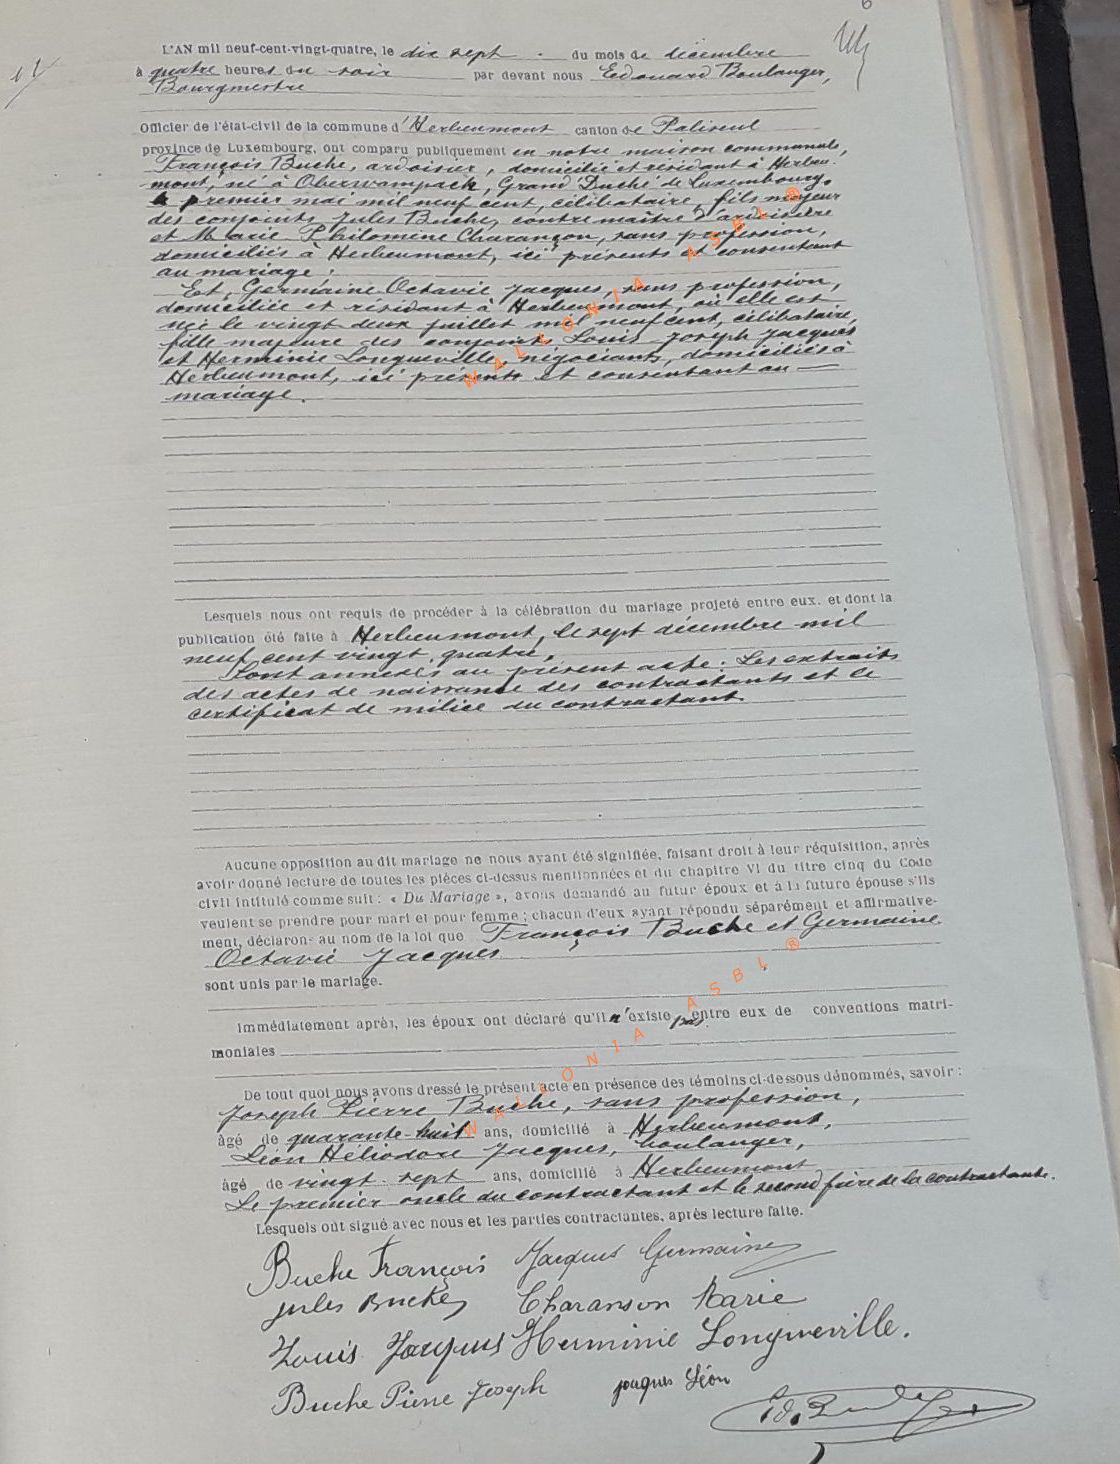 6
L'AN mil neuf-cent-vingt-quatre, le dix sept du mois de décembre
à quatre heures du soir par devant nous Edouard Boulanger,
Bourgmestre
Officier de l'état-civil de la commune d'Herbeumont canton de Paliseul
province de Luxembourg, ont comparu publiquement en notre maison communale,
François Buche, ardoisier, domicilié et résidant à Herbeu-
mont, né à Oberwampach, Grand Duché de Luxembourg,
le premier mai mil neuf cent, célibataire, fils majeur
des conjoints Jules Buche, contre maître d'ardoisière
et Marie Philomine Charançon, sans profession,
domiciliés à Herbeumont, ici présents et consentant
au mariage.
Et, Germaine Octavie Jacques, sans profession,
domiciliée et résidant à Herbeumont, où elle est
née le vingt deux juillet mil neuf cent, célibataire,
fille majeure des conjoints Louis Joseph Jacques
et Herminie Longueville, négociants, domiciliés à
Herbeumont, ici présents et consentant au
mariage.
WALLONIA ASBL ®
Lesquels nous ont requis de procéder à la célébration du mariage projeté entre eux. et dont la
publication été faite à Herbeumont, le sept décembre mil
neuf cent vingt quatre,
Sont annexés au présent acte : Les extraits
des actes de naissance des contractants et le
certificat de milice du contractant.
Aucune opposition au dit mariage ne nous ayant été signifiée, faisant droit à leur réquisition, après
avoir donné lecture de toutes les pièces ci-dessus mentionnées et du chapitre VI du titre cinq du Code
civil intitulé comme suit : « Du Mariage », avons demandé au futur époux et à la future épouse s'ils
veulent se prendre pour mari et pour femme ; chacun d'eux ayant répondu séparément et affirmative-
ment, déclarons au nom de la loi que François Buche et Germaine
Octavie Jacques
sont unis par le mariage.
Immédiatement après, les époux ont déclaré qu'il n'existe pas entre eux de conventions matri-
moniales
WALLONIA ASBL ®
De tout quoi nous avons dressé le présent acte en présence des témoins ci-dessous dénommés, savoir :
Joseph Pierre Buche, sans profession,
âgé de quarante-huit ans, domicilié à Herbeumont,
Léon Héliodore Jacques, boulanger,
âgé de vingt-sept ans, domicilié à Herbeumont
Le premier oncle du contractant et le second frère de la contractante.
Lesquels ont signé avec nous et les parties contractantes, après lecture faite.
Buche François Jacques Germaine
Jules Buche Charanson Marie
Louis Jacques Herminie Longueville.
Buche Pierre Joseph Jacques Léon